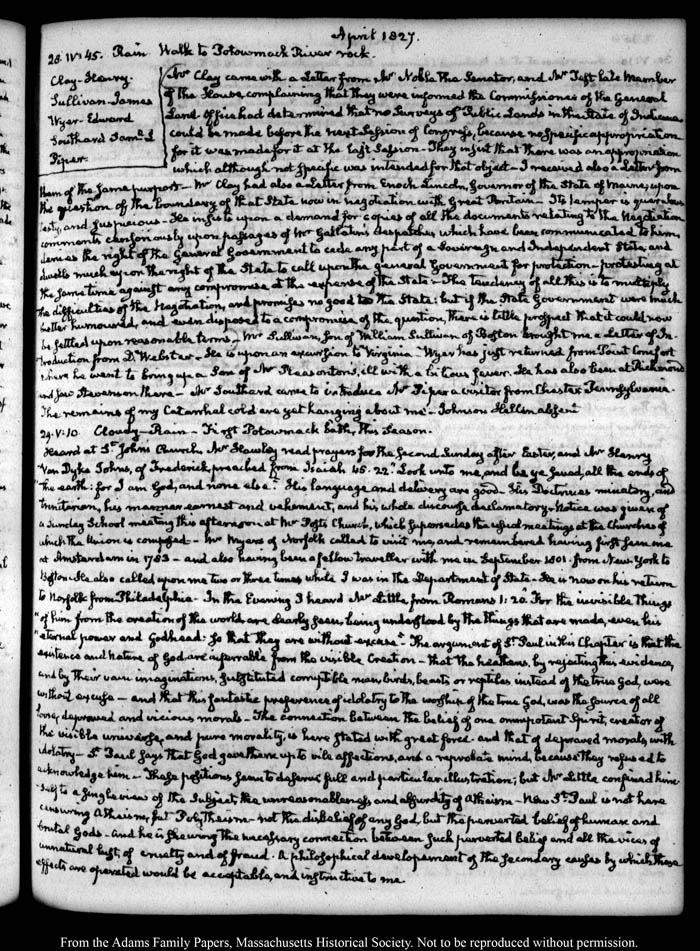 April 1827.
28. IV: 45. Rain Walk to Potowmack River rock.
Clay-Henry.
Sullivan-James
Wyer-Edward
Southard Saml. L
Piper.
Mr Clay came with a Letter from Mr Noble the Senator, and Mr Test late Member
of the House complaining that they were informed the Commissioner of the General
Land Office had determined that no Surveys of Public Lands in the State of Indiana
could be made before the next Session of Congress, because no specific appropriation
for it was made for it at the last Session - They insist that there was an appropriation
which although not specific was intended for that object - I received also a Letter from
them of the same purport - Mr Clay had also a Letter from Enoch Lincoln, Governor of the State of Maine, upon
the question of the boundary of that State now in negotiation with Great Britain - Its temper is querulous
testy, and suspicious - He insists upon a demand for copies of all the documents relating to the Negotiation
comments censoriously upon passages of Mr Gallatin's despatches which have been communicated to him,
denies the right of the General Government to cede any part of a Sovereign and Independent State, and
dwells much upon the right of the State to call upon the general Government for protection - protesting at
the same time against any compromise at the expense of the State - The tendency of all this is to multiply
the difficulties of the Negotiation, and promises no good to the State: but if the State Government were much
better humoured, and even disposed to a compromise of the question, there is little prospect that it could now
be settled upon reasonable terms - Mr Sullivan, Son of William Sullivan of Boston brought me a Letter of In-
troduction from D. Webster - He is upon an excursion to Virginia - Wyer has just returned from Point Comfort
where he went to bring up a Son of Mr Pleasonton's, ill with a bilious fever. He has also been at Richmond
and saw Stevenson there - Mr Southard came to introduce Mr Piper a visitor from Chester Pennsylvania.
The remains of my Catarrhal cold are yet hanging about me - Johnson Hellen absent
29. V. 10. Cloudy - Rain - First Potowmack bath, this Season.
Heard at St. John's Church, Mr Hawley read prayers for the Second Sunday after Easter, and Mr Henry
Van Dyke Johns, of Frederick, preached from Isaiah 45. 22. "Look unto me, and be ye saved, all the ends of
"the earth: for I am God, and none else." His language and delivery are good - His Doctrines minatory, and
trinitarian, his manner earnest and vehement, and his whole discourse declamatory - Notice was given of
a Sunday School meeting this afternoon at Mr Post's Church, which supersedes the usual meetings at the Churches of
which the Union is composed - Mr Myers of Norfolk called to visit me, and remembered having first seen me
at Amsterdam in 1783 - and also having been a fellow traveller with me in September 1801. from New-York to
Boston - He also called upon me two or three times while I was in the Department of State - He is now on his return
to Norfolk from Philadelphia - In the Evening I heard Mr Little from Romans 1: 20. "For the invisible things
"of him from the creation of the world are clearly seen, being understood by the things that are made, even his
"eternal power and Godhead: so that they are without excuse." The argument of St. Paul in this Chapter is that the
existence and nature of God are inferrable from the visible Creation - that the heathens, by rejecting this evidence,
and by their vain imaginations, substituted corruptible man, birds, beasts or reptiles instead of the true God, were
without excuse - and that this fantastic preference of idolatry to the worship of the true God, was the source of all
loose, depraved and vicious morals - The connection between the belief of one omnipotent Spirit, creator of
the visible universe, and pure morality, is here stated with great force - and that of depraved morals, with
idolatry - St. Paul says that God gave them up to vile affections, and a reprobate mind, because they refused to
acknowledge him - These positions seem to deserve full and particular illustration; but Mr Little confined him-
self to a single view of the subject, the unreasonableness, and absurdity of Atheism - Now St. Paul is not here
censuring Atheism, but Polytheism - not the disbelief of any God, but the perverted belief of human and
brutal Gods - And he is shewing the necessary connection between such perverted belief and all the vices of
unnatural lust, of cruelty and of fraud. A philosophical developement of the secondary causes by which these
effects are operated would be acceptable, and instructive to me
From the Adams Family Papers, Massachusetts Historical Society. Not to be reproduced without permission.